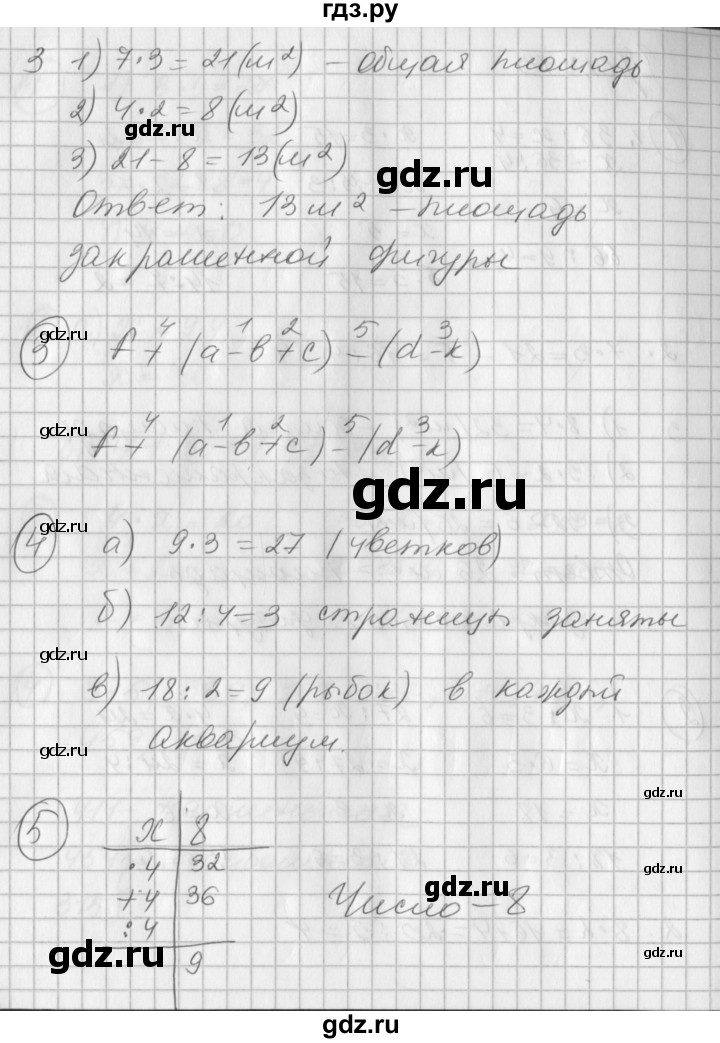 гдз.ру
3 1) 7·3 = 21 (м²) – общая площадь
2) 4·2 = 8 (м²)
gdz.ru
3) 21 – 8 = 13 (м²)
gdz.ru
gdz.ru
Ответ: 13 м² – площадь
закрашенной фигуры
gdz.ru
4 1 2 5 3
3 f + (a – b + c) – (d – k)
gdz.ru
gdz.ru
4 1 2 5 3
f + (a – b + c) – (d – k)
gdz.ru
4 а) 9·3 = 27 (цветков)
gdz.ru
б) 12 : 4 = 3 страницы заняты
gdz.ru
в) 18 : 2 = 9 (рыбок) в каждый
gdz.ru
аквариум.
gdz.ru
gdz.ru
5 x 8
·4 32
+4 36
:4
9
gdz.ru
Число – 8
gdz.ru
gdz.ru
gdz.ru
gdz.ru